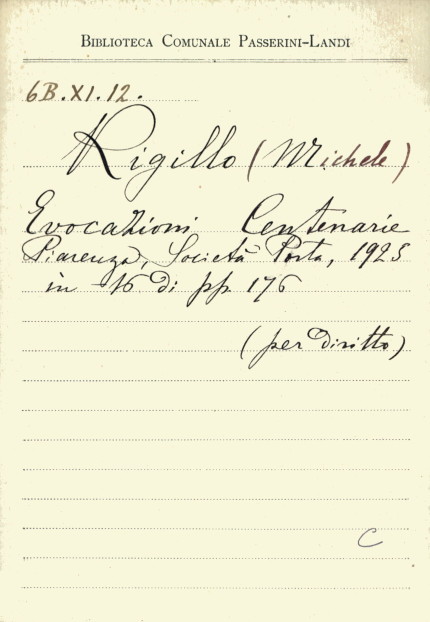 BIBLIOTECA COMUNALE PASSERINI-LANDI
6B.XI.12.
Rigillo (Michele)
Evocazioni Centenarie
Piacenza, Società Porta, 1925
in -16 di pp. 176
(per diritto)
C